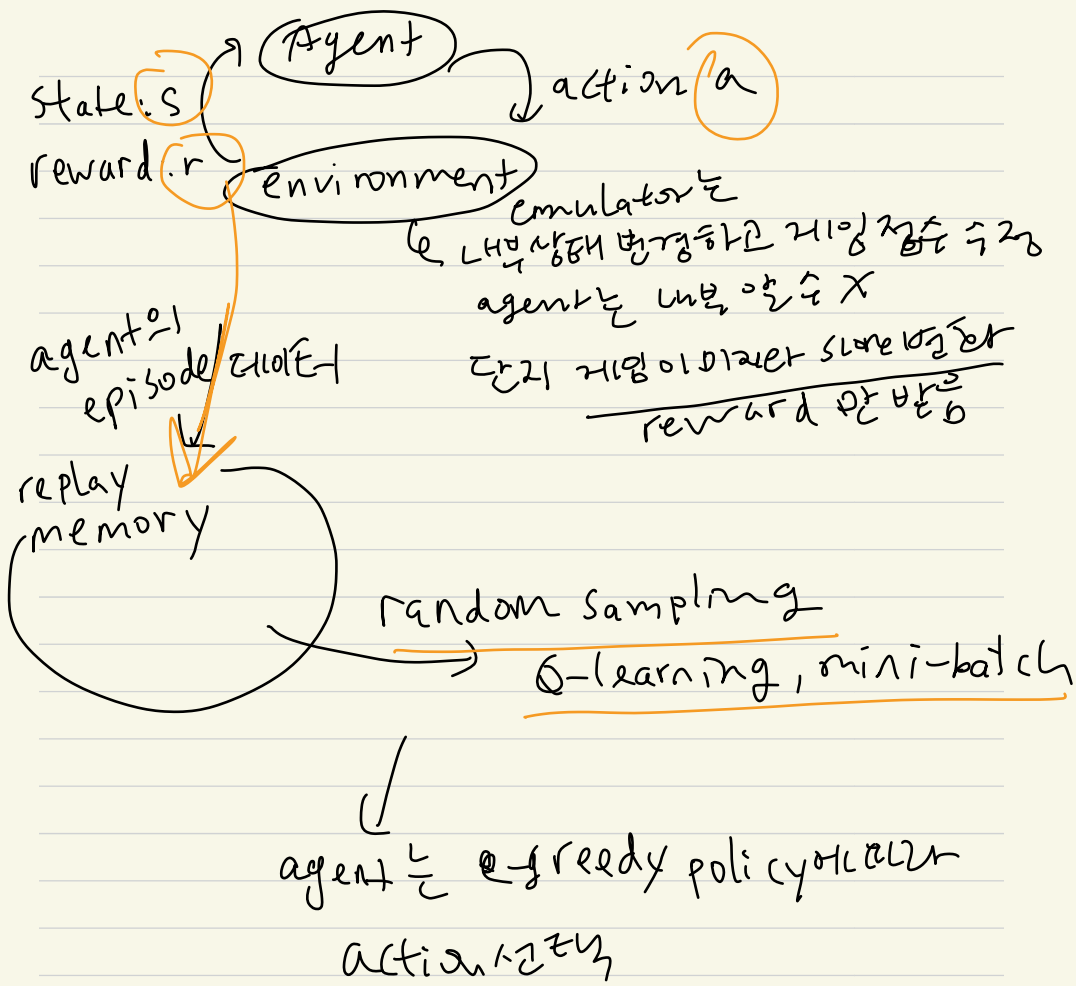 Agent
state: s
action a
reward: r
environment
emulator는
내부상태 변경하고 게임 점수 수정
agent는 내부 알수 X
단지 게임이미지와 score변화
reward 만 받음
agent의
episode 데이터
replay
memory
random sampling
Q-learning, mini-batch
agent는 e-greedy policy에따라
action선택